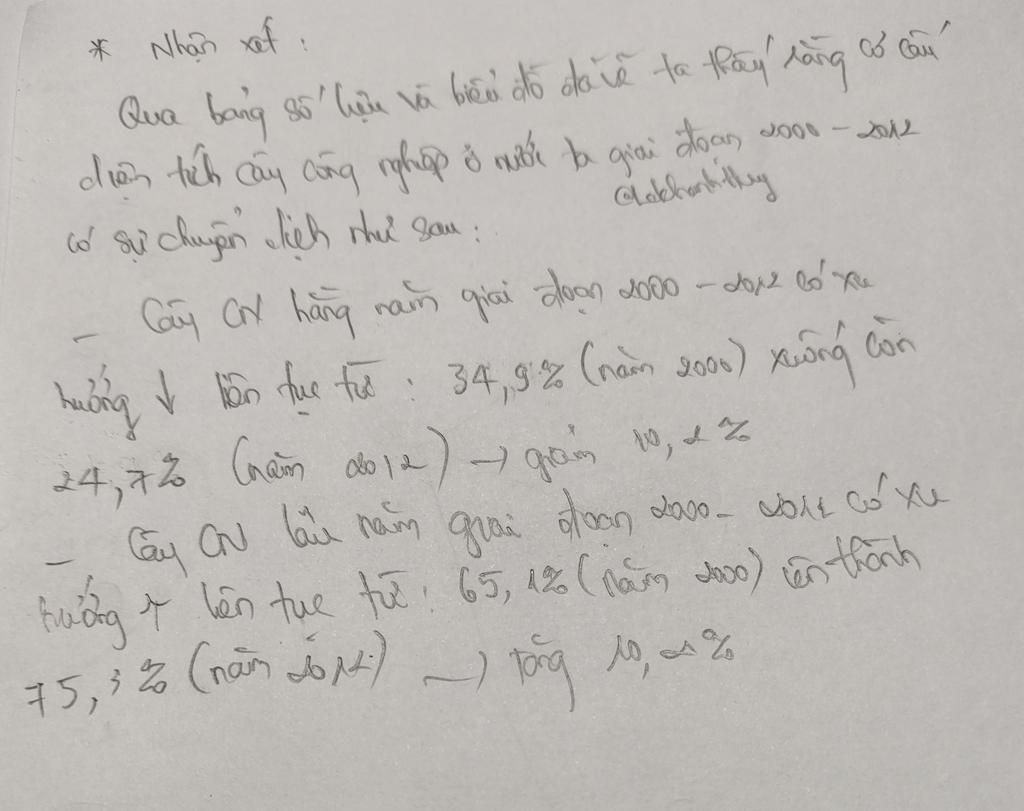 * Nhận xét :
Qua bảng số liệu và biểu đồ đã vẽ ta thấy rằng cơ cấu
diện tích cây công nghiệp ở nước ta giai đoạn 2000 - 2012
có sự chuyển dịch như sau :
- Cây CN hằng năm giai đoạn 2000 - 2012 có xu
hướng ↓ liên tục từ : 34,9% (năm 2000) xuống còn
24,7% (năm 2012) → giảm 10,2%
- Cây CN lâu năm giai đoạn 2000 - 2012 có xu
hướng ↑ liên tục từ : 65,1% (năm 2000) lên thành
75,3% (năm 2012) → tăng 10,2%